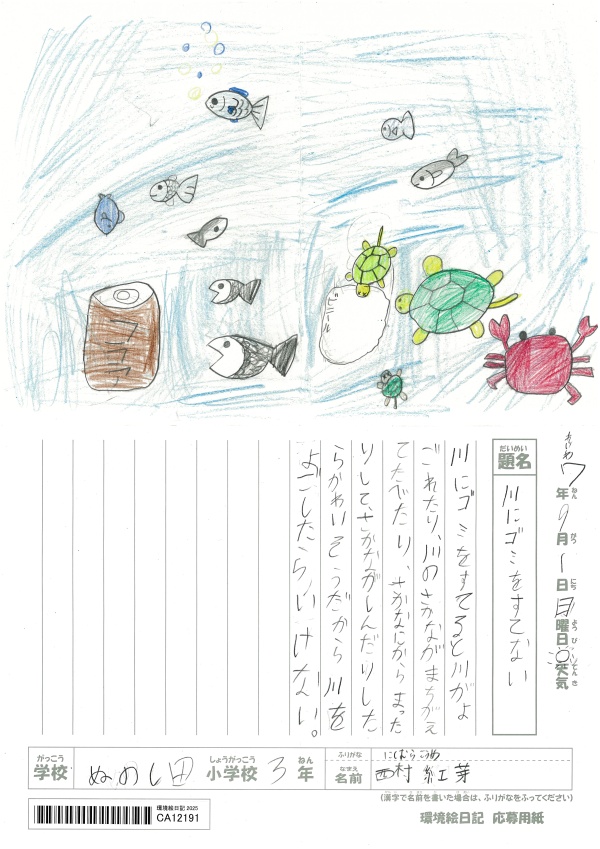 コーラ
ビニール
れいわ
7年9月1日目曜日天気
ねん がつ にち ようび てんき
だいめい
題名
川にゴミをすてない
川にゴミをすてると川がよ
ごれたり、川のさかながまちがえ
てたべたり、さかなにからまった
りして、さかながしんだりした
らかわいそうだから川を
よごしたらいけない。
がっこう しょうがっこう ねん ふりがな にしむら こうめ
学校 ぬのし田 小学校 3年 なまえ 名前 西村 紅芽
(漢字で名前を書いた場合は、ふりがなをふってください)
環境絵日記2025
CA12191
環境絵日記 応募用紙